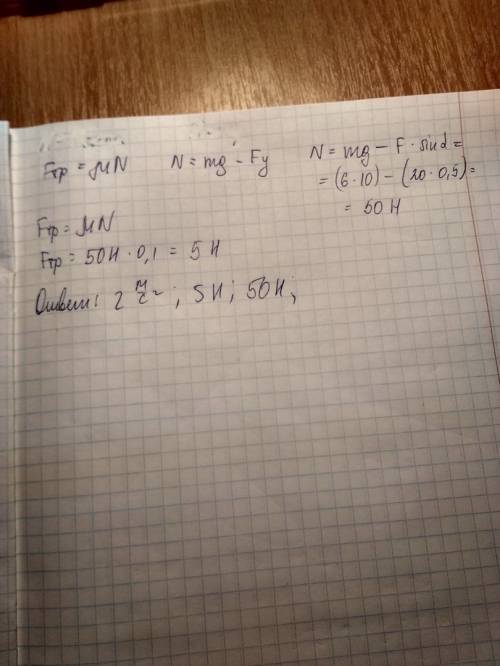 Fтр = μN
N = mg - Fy
N = mg - F · sinα =
= (6 · 10) - (20 · 0,5) =
= 50 Н
Fтр = μN
Fтр = 50Н · 0,1 = 5 Н
Ответ: 2 м/с²; 5Н; 50Н;